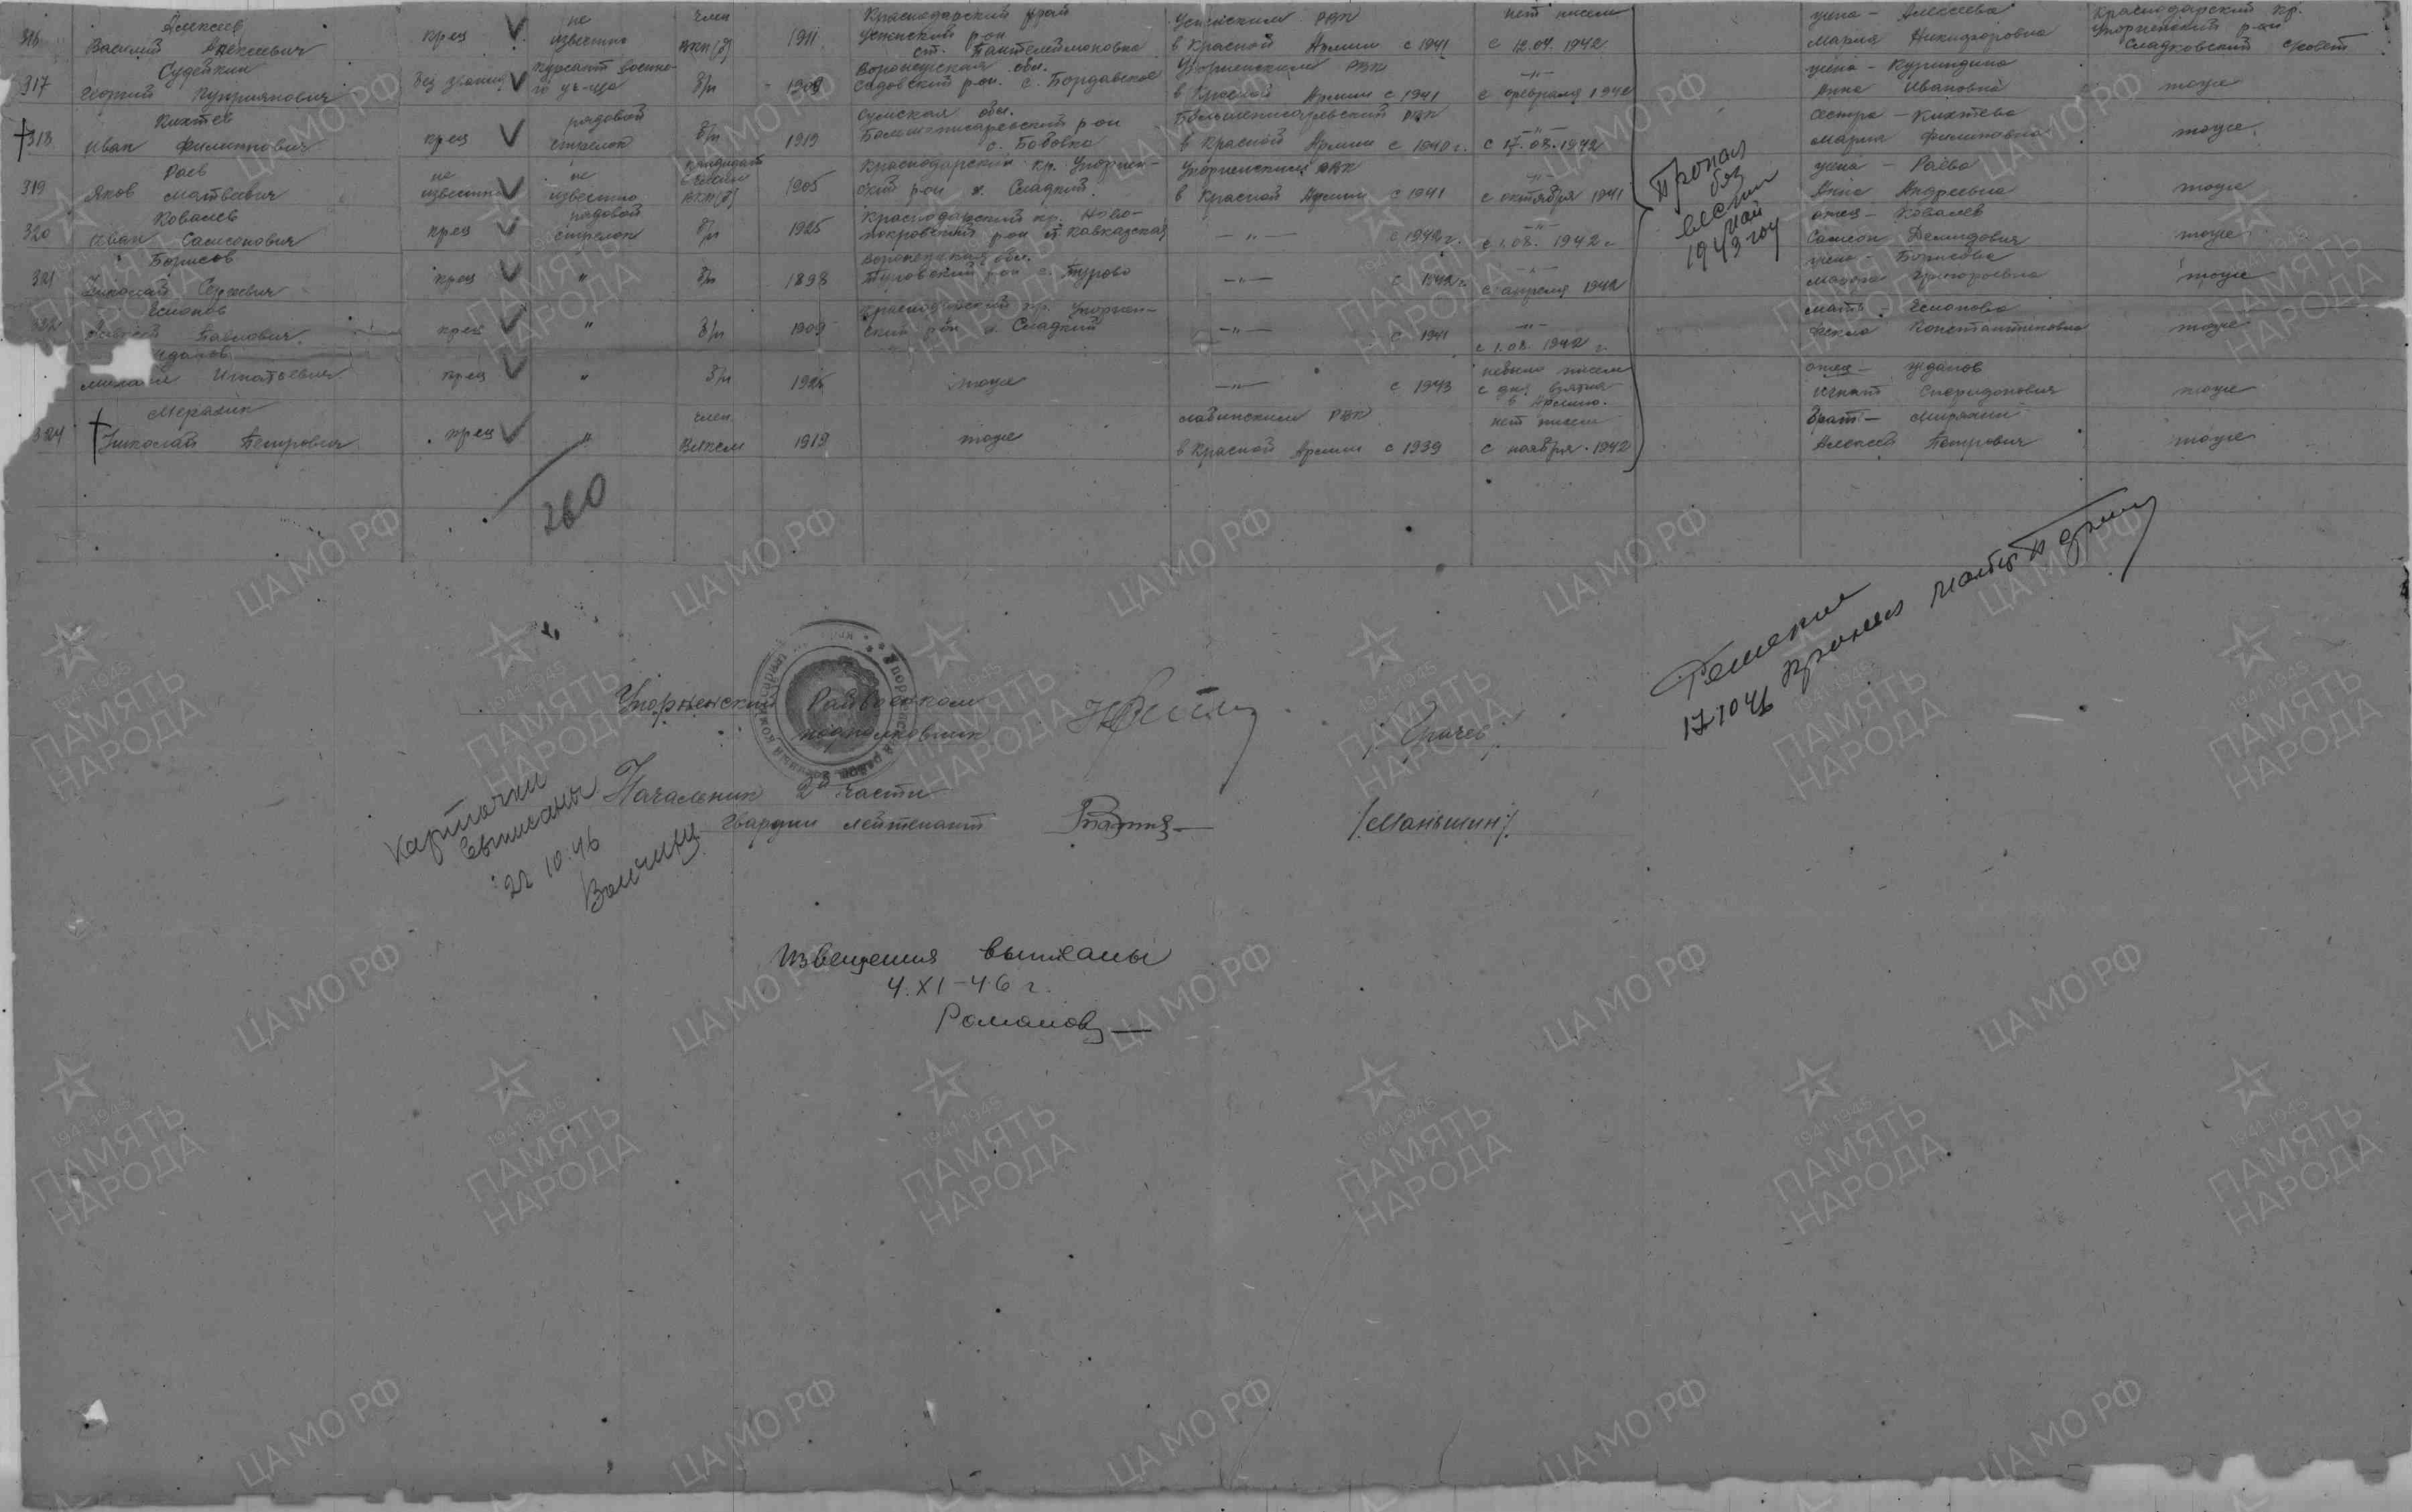 316 Алексеев Василий Алексеевич крец V не известно член ВКП(б) 1911 Краснодарский край Успенский р-он ст. Пантелеймоновка Успенским РВК в Красной Армии с 1941 нет писем с 12.04.1942 жена – Алексеева Мария Никифоровна Краснодарский кр. Упорненский р-он Сладковский с/совет
317 Судейкин Георгий Куприянович без звания V курсант военно-го уч-ща б/п 1909 Воронежская обл. Садовский р-он. с. Бордавское Упорненским РВК в Красной Армии с 1941 –"– с февраля 1942 жена – Куриндина Анна Ивановна тоже
318 Кихтев Иван Филиппович крец V рядовой стрелок б/п 1919 Сумская обл. Большеписаревский р-он с. Бобовка Большеписаревский РВК в Красной Армии с 1940 г. –"– с 17.08.1942 сестра – Кихтева Мария Филиповна тоже
319 Раев Яков Матвеевич не известно V не известно кандидат в члены ВКП(б) 1905 Краснодарский кр. Упорнен-ский р-он х. Сладкий Упорненским РВК в Красной Армии с 1941 –"– с октября 1941 жена – Раева Анна Андреевна тоже
320 Ковалев Иван Самсонович крец V рядовой стрелок б/п 1925 Краснодарский кр. Ново-покровский р-он ст. Кавказская –"– с 1942 г. –"– с 1.08.1942 г. отец – Ковалев Самсон Демидович тоже
321 Борисов Николай Сергеевич крец V " б/п 1898 Воронежская обл. Туровский р-он с. Турово –"– с 1942 г. –"– с апреля 1942 жена – Борисова Григорьевна тоже
322 Есионов Павлович крец V " б/п 1909 Краснодарский кр. Упорнен-ский р-он х. Сладкий –"– с 1941 –"– с 1.08.1942 г. мать Есионова Фекла Константиновна тоже
Жданов Михаил Игнатьевич крец V " б/п 1925 тоже –"– с 1943 небыло писем с дня взятия в Армию. отец – Жданов Игнат Спиридонович тоже
324 Мерзлин Николай Петрович крец V " член ВЛКСМ 1919 тоже Лабинским РВК в Красной Армии с 1939 нет писем с ноября 1942 брат – Мирзлин Алексей Петрович тоже
Пропал
без
вести
май
1943 году
260
Решение
17 10 46
Упорненский Райвоенком
подполковник
/Грачев/
Начальник 2й части
Гвардии лейтенант
/Маньшин/
Карточки
выписаны
22 10.46
Извещения высланы
4.XI-46 г.
Романов
ЦА МО РФ
1941-1945
ПАМЯТЬ
НАРОДА